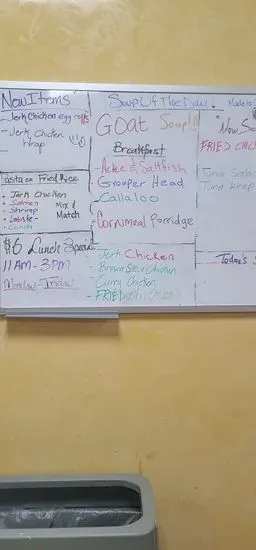 New Items
- Jerk Chicken egg rolls
- Jerk Chicken
Wrap
Pasta or Fried Rice
• Jerk Chicken
• Salmon
• Shrimp
• Lobster
• Conch
Mix &
Match
$6 Lunch Special
11AM-3PM
Monday-Friday
Soup Of The Day!
GOAT Soup!!!
Breakfast
- Ackee & Saltfish
- Grouper Head
- Callaloo
- Cornmeal Porridge
- Jerk Chicken
- Brown Stew Chicken
- Curry Chicken
- FRIED Chicken
Made to
Now Se
FRIED CHIC
Tuna Sala
Tuna Wrap
Today's S